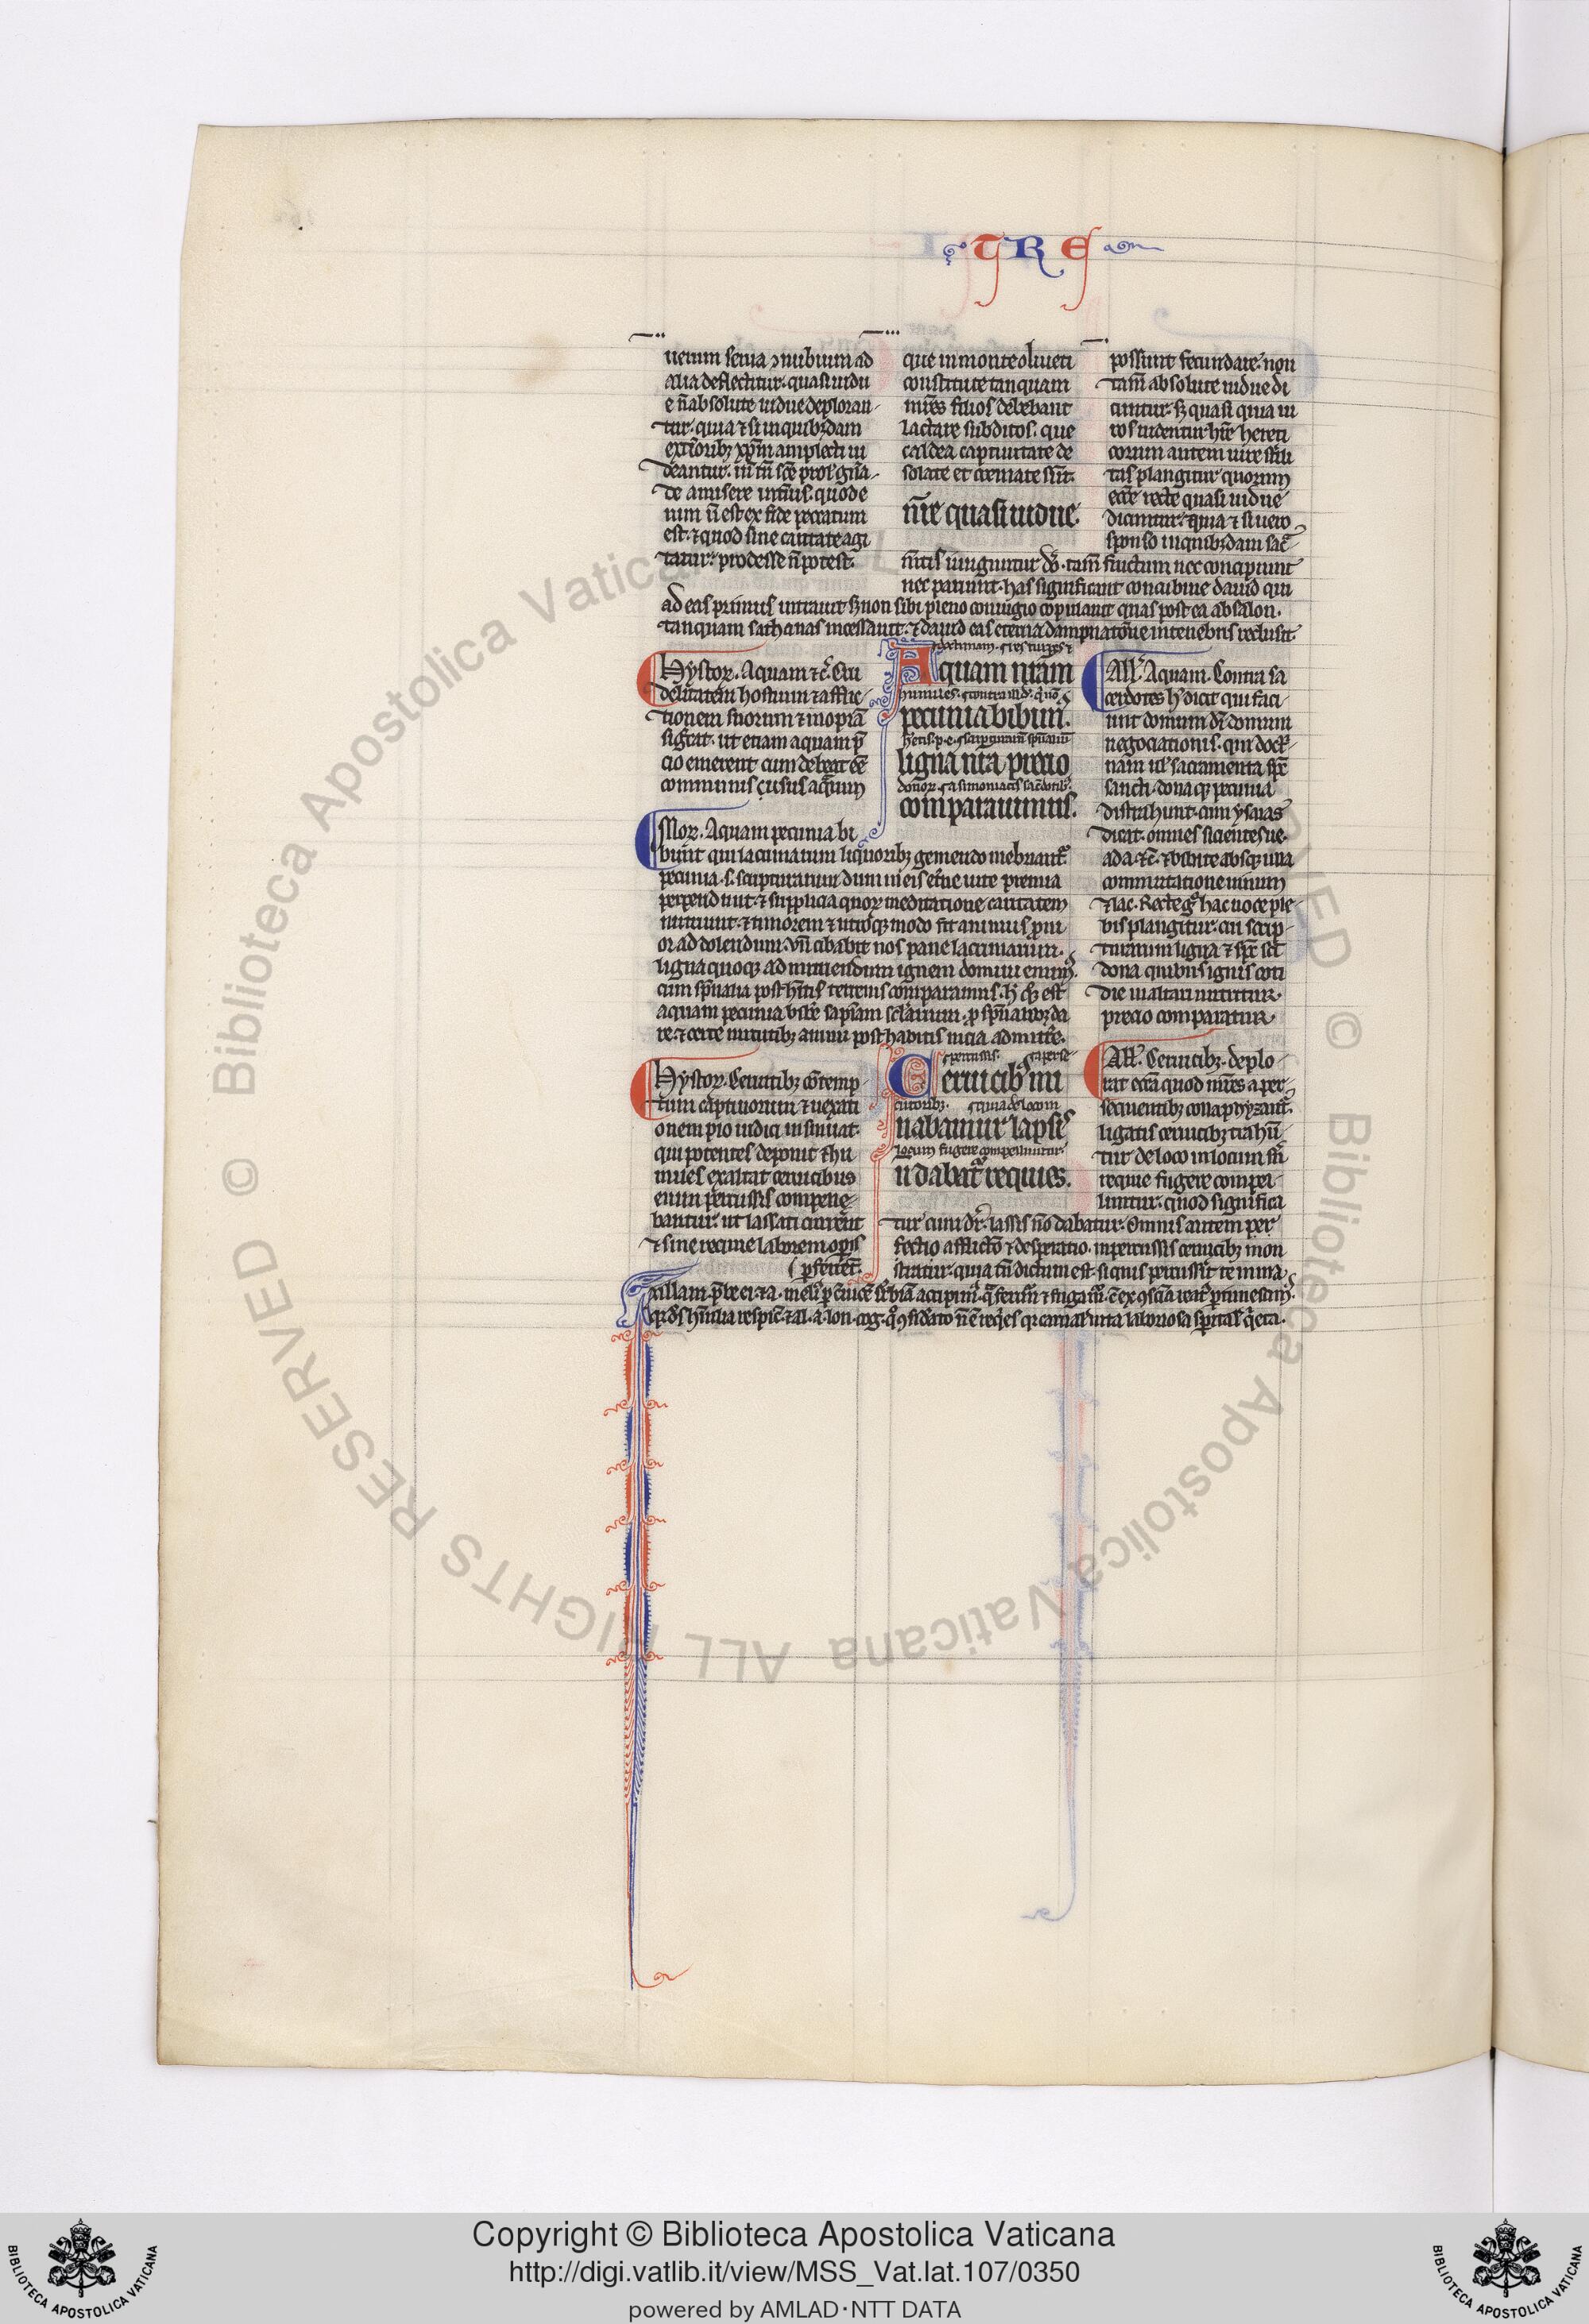 TRE
uerum seruia ⁊ nubium ad
alia deflectitur. quasi uidu
e n̄ absolute uidue deploran
tur. quia ⁊ si in quibꝫdam
exterioribꝫ xp̄m amplecti ui
deantur.
de amisere
num n̄ est ex fide peccatum
est. ⁊ quod sine caritate agi
tatur. prodesse n̄ potest.
que in monte oliueti
constitute tanquam
mr̄es filios debebant
lactare subditos. que
caldea captiuitate de
solate et cremate sūt.
nr̄e quasi uidue.
possunt fecundare. non
tam̄ absolute uidue di
cuntur. sꝫ quasi quia ui
ros uidentur hr̄e hereti
corum autem uire steri
tas plangitur quorum
ecc̄e recte quasi uidue
dicuntur. quia ⁊ si uero
sponso in quibꝫdam sac̄
m̄tis iunguntur dō. tam̄ fructum nec concipiunt
nec pariunt. has significant concubine dauid qui
ad eas primus intrauit sꝫ non sibi pleno coniugio copulauit quas postea absalon.
tanquam sathanas incestauit. ⁊ dauid eas eterna dampnatōne in tenebris reclusit.
Hystor. Aquam ⁊c̄. Cru
delitatem hostium ⁊ afflic
tionem suorum ⁊ inopiā
sig̅cat. ut etiam aquam p̄
cio emerent cum debeat eē
communis usus aquarum
Aquam nr̄am
pecunia bibim̄.
ligna nr̄a precio
comparauimus.
All. Aquam. Contra sa
cerdotes h̄ dicit qui faci
unt domum dī domum
negociationis. qui doctr̄
nam uel sacramenta sp̄c
sancti. dona qꝫ pecunia
distrahunt. cum ysaias
dicat. omnes sicientes ue
⁊c̄. ⁊ bibite absqꝫ ulla
commutatione uinum
⁊ lac. Recte gͦ hac uoce ple
bis plangitur. cui scrip
turarum ligna ⁊ sp̄c sc̄i
dona quibus ignis coti
die in altari nutritur.
precio comparatur.
Mor. Aquam pecunia bi
bunt qui lacrimarum liquoribꝫ gemendo inebriant᷑
pecunia .s. scripturarum dum in eis et̄ne uite premia
perpendunt. ⁊ supplicia quoꝝ meditatione caritatem
nutriunt. ⁊ timorem ⁊ utroqꝫ modo fit animus pron
or ad dolendum. vn̄ cibabit nos pane lacrimarum.
ligna quoqꝫ ad nutriendum ignem domini emim᷒
cum sp̄nalia posthītis terrenis comparamus. h̄ est
aquam pecunia bibere
⁊ certe uirtutibꝫ animi posthabitis admittere.
Hystor. Ceruicibꝫ cōtemp
tum captiuorum ⁊ uexati
onem pio iudici insinuat.
qui potentes deponit ⁊ hu
miles exaltat ceruicibus
enim percussis compelle
bantur. ut lassati currerent
⁊ sine requie laborem opis
perferrent.
Ceruicibꝫ mi
nabamur lapsis
n̄ dabat᷑ requies.
All. Ceruicibꝫ. deplo
rat ecc̄a quod mr̄es a per
sequentibꝫ
ligatis ceruicibꝫ trahū
tur de loco in locum sī
requie fugere compel
luntur. quod significa
tur cum dr̄. lassis nō dabatur. Omnis autem per
fectio afflictō ⁊ desperatio. in percussis ceruicibꝫ mon
stratur. quia cū dictum est. siquis percusserit te in ma
xillam. prebe ei ⁊
Copyright © Biblioteca Apostolica Vaticana
http://digi.vatlib.it/view/MSS_Vat.lat.107/0350
powered by AMLAD·NTT DATA
BIBLIOTECA APOSTOLICA VATICANA
BIBLIOTECA APOSTOLICA VATICANA
© Biblioteca Apostolica Vaticana ALL RIGHTS RESERVED